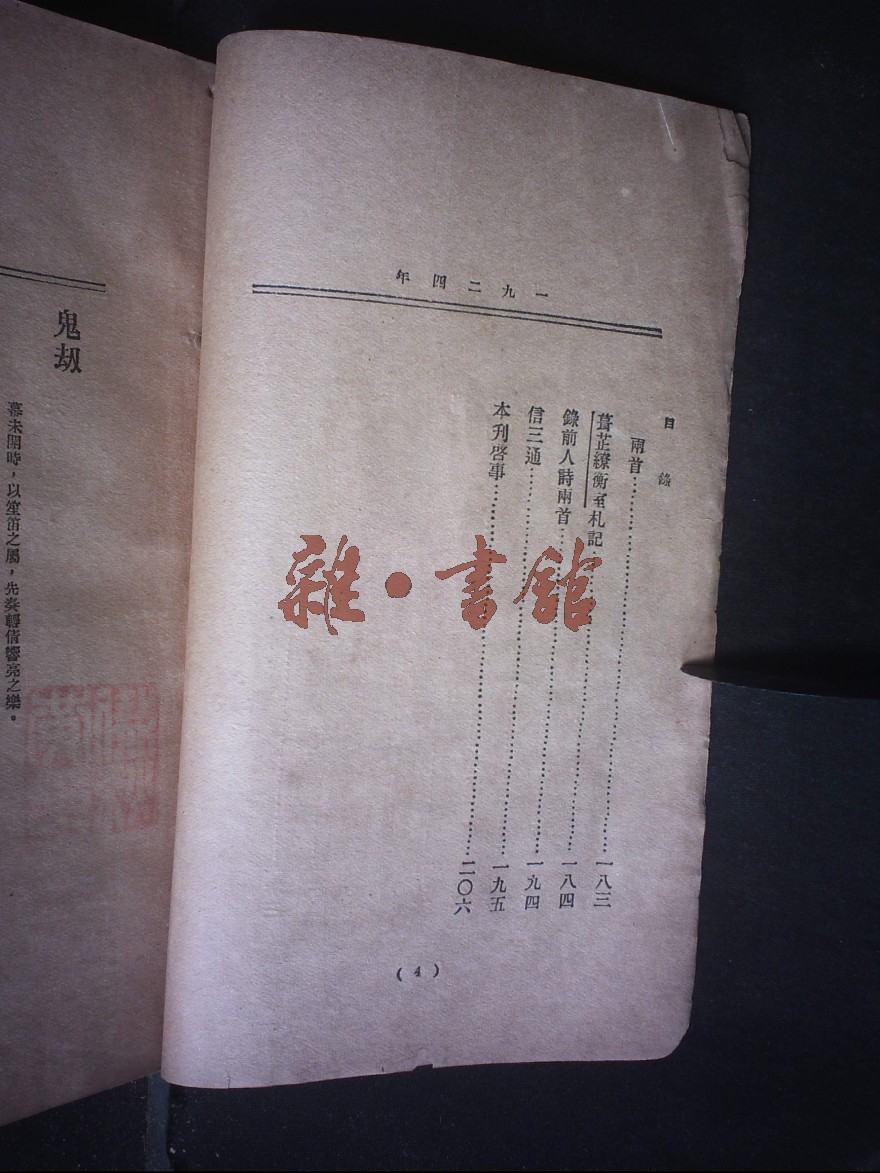 一九二四年
目錄
兩首……一八三
葺芷繚衡室札記……一八四
錄前人詩兩首……一九四
信三通……一九五
本刋啓事……二〇六
(4)
雜·書館
鬼劫
幕未開時，以笙笛之屬，先奏輕倩響亮之樂。